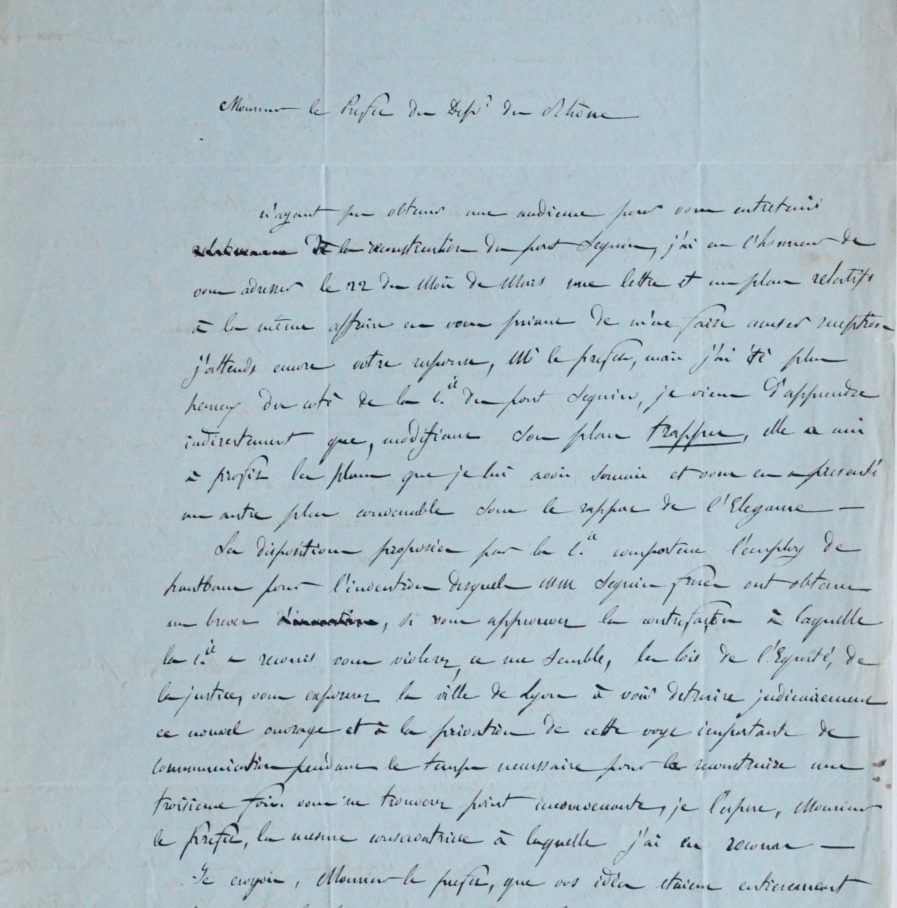 Monsieur le Préfet du Dépt du Rhône
n'ayant pu obtenir une audience pour vous entretenir
de la reconstruction du pont Seguin, j'ai eu l'honneur de
vous adresser le 22 du Mois de Mars une lettre et un plan relatifs
à la même affaire en vous priant de m'en faire accuser reception
j'attends encore votre reponse, Mr le prefet, mais j'ai été plus
heureux du coté de la Cie du pont Seguin, je viens d'apprendre
indirectement que, modifiant son plan trappu, elle a mis
à profit les plans que je lui avois soumis et vous en a presenté
un autre plus convenable sous le rapport de l'Elegance —
Les dispositions proposées par la Cie comportent l'employ de
haubans pour l'invention desquels MM Seguin freres ont obtenu
un brevet, si vous approuvez la contrefaction à laquelle
la Cie a recouru vous violerez, ce me semble, les lois de l'Equité, de
la justice, vous exposerez la ville de Lyon à voir detruire judiciairement
ce nouvel ouvrage et à la privation de cette voye importante de
communication pendant le temps necessaire pour le reconstruire une
troisieme fois. vous ne trouverez point inconvenante, je l'espere, Monsieur
le prefet, la mesure conservatrice à laquelle j'ai eu recours —
Je croyois, Monsieur le prefet, que vos idées etaient entierement